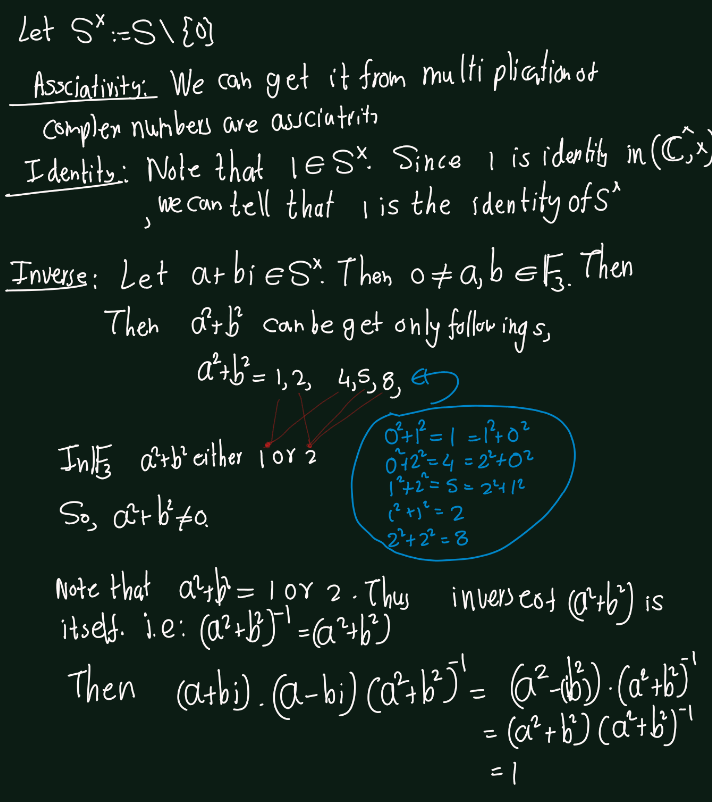 Let S^x := S \ {0}
Assciativity: We can get it from multi plication of
complex numbers are assciativity
Identity: Note that 1 ∈ S^x. Since 1 is identity in (ℂ^x, x)
, we can tell that 1 is the identity of S^x
Inverse: Let a+bi ∈ S^x. Then 0 ≠ a, b ∈ F_3. Then
Then a²+b² can be get only following s,
a²+b² = 1, 2, 4, 5, 8,
0²+1² = 1 = 1²+0²
0²+2² = 4 = 2²+0²
1²+2² = 5 = 2²+1²
1²+1² = 2
2²+2² = 8
In F_3 a²+b² either 1 or 2
So, a²+b² ≠ 0.
Note that a²+b² = 1 or 2. Thus inverse of (a²+b²) is
itself. i.e: (a²+b²)^-1 = (a²+b²)
Then (a+bi).(a-bi)(a²+b²)^-1 = (a²-(ib)²).(a²+b²)^-1
= (a²+b²)(a²+b²)^-1
= 1